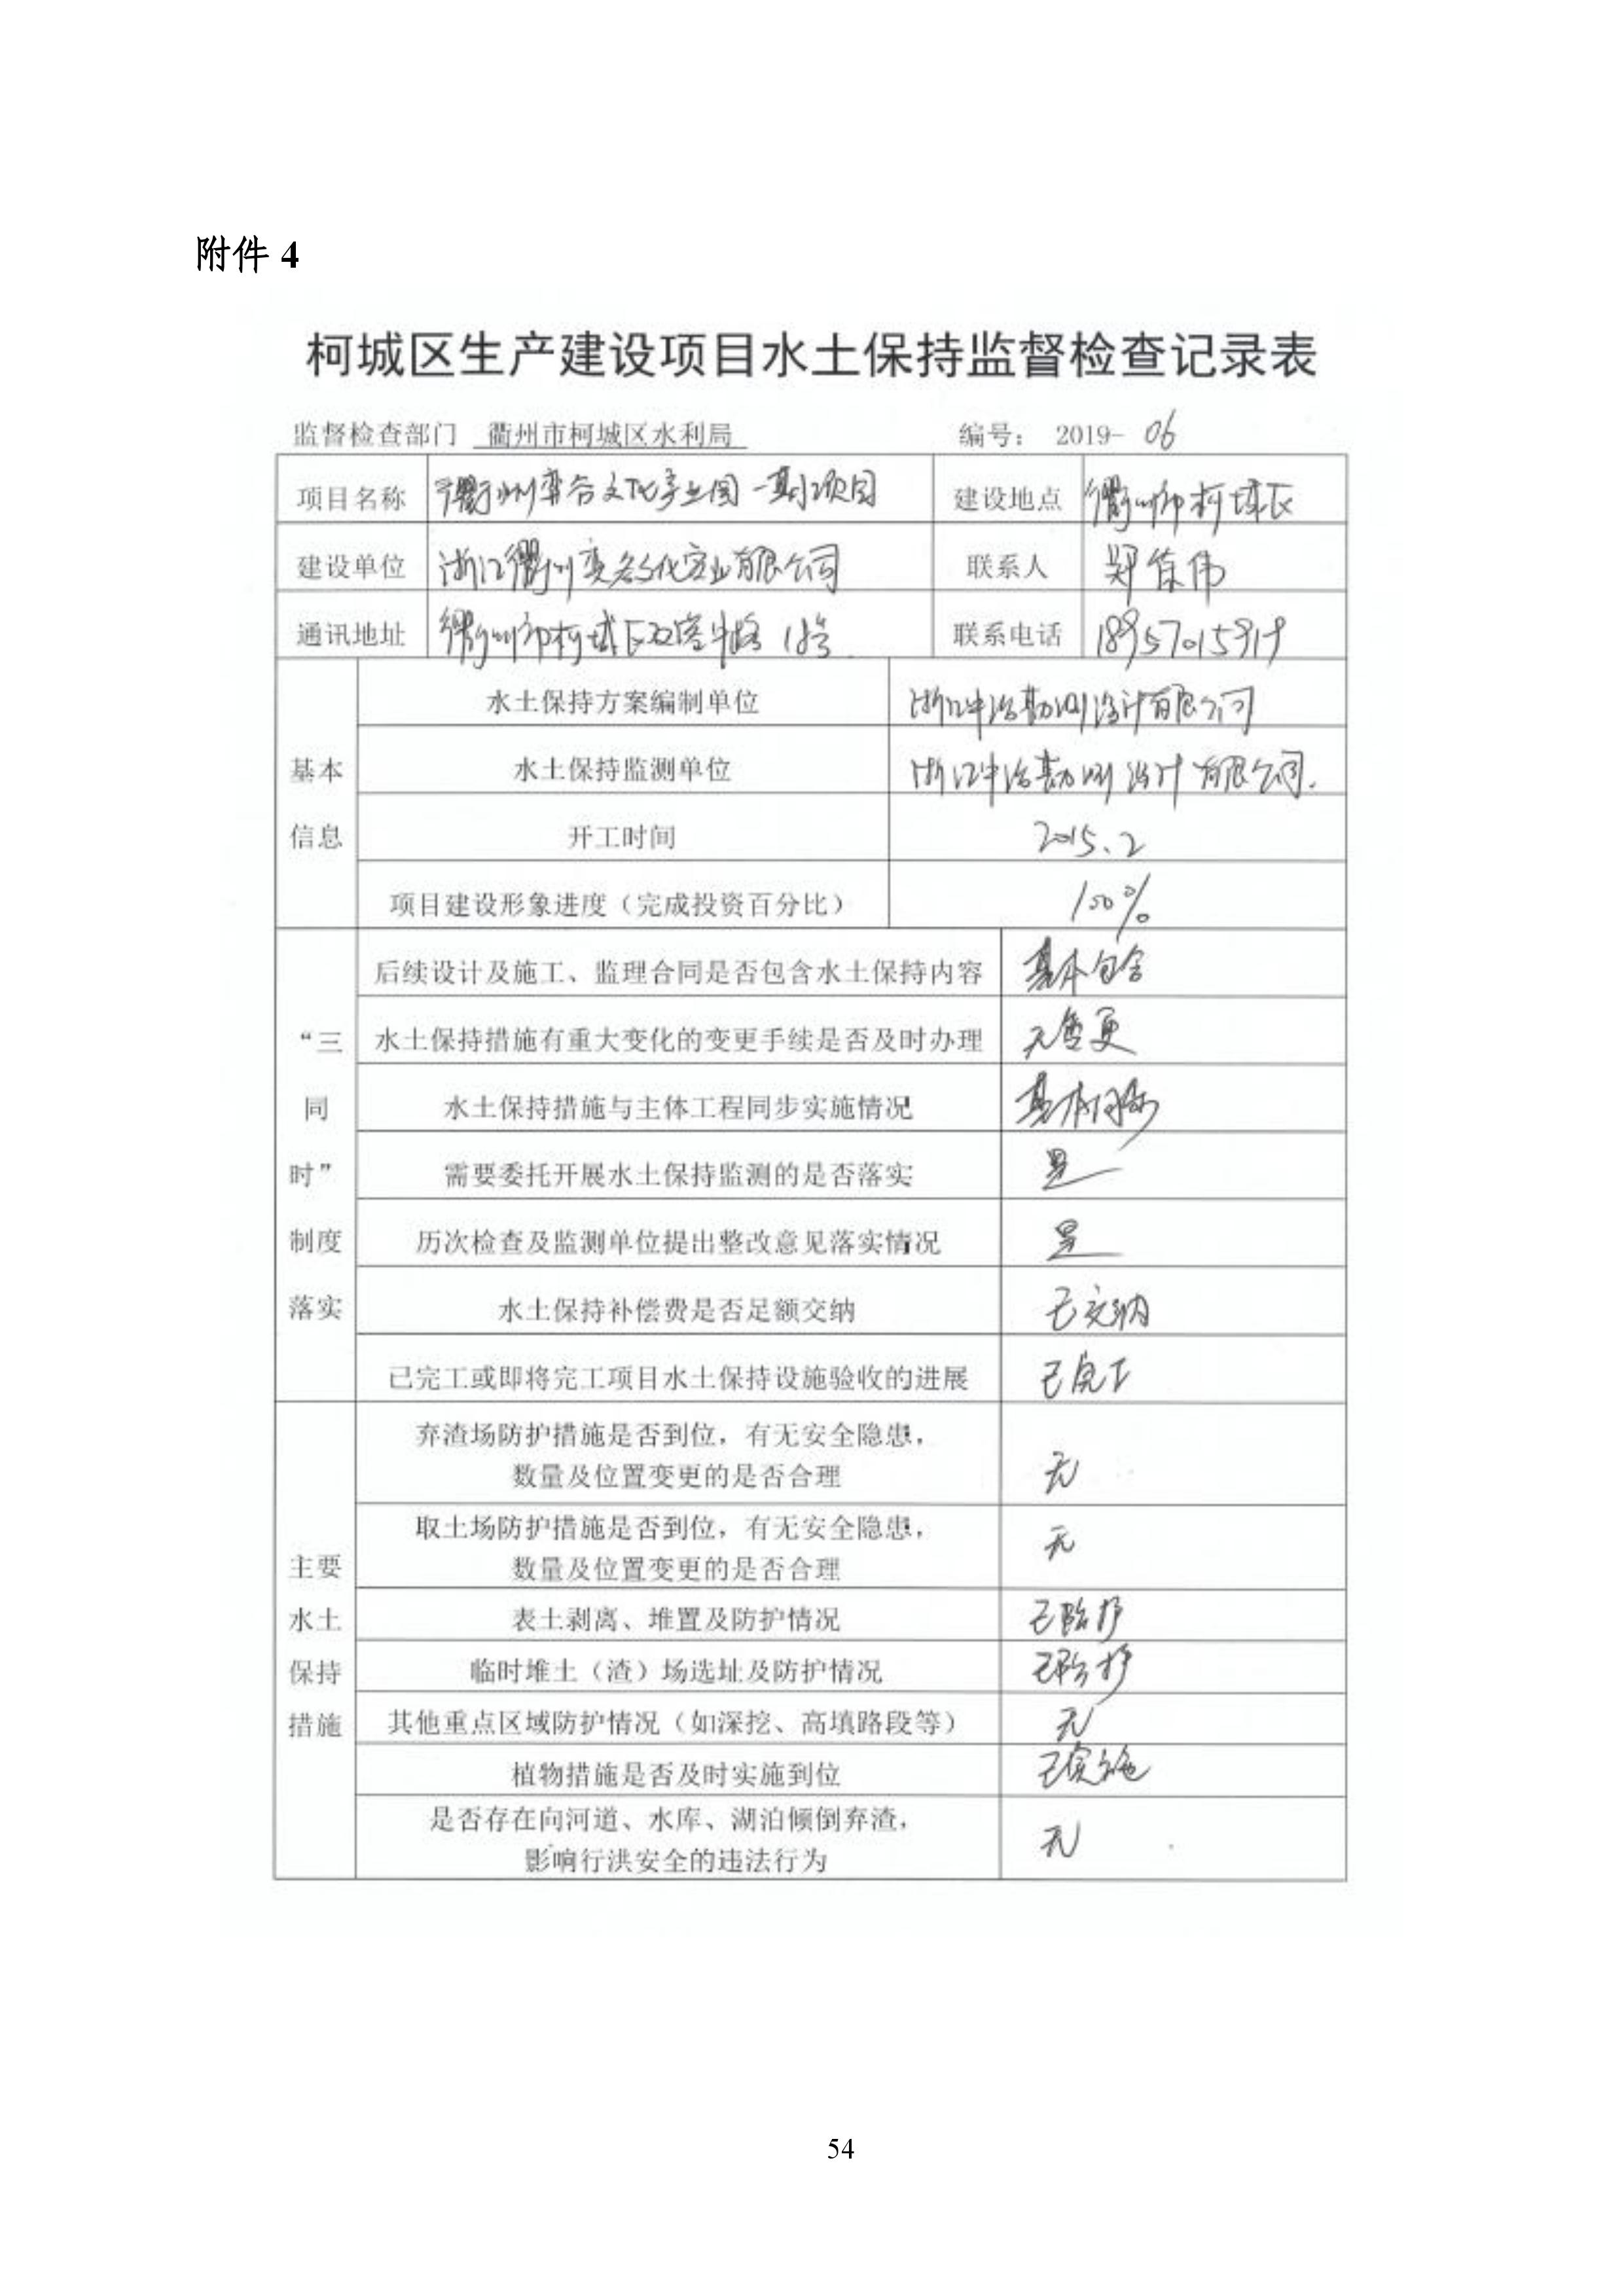 附件 4
柯城区生产建设项目水土保持监督检查记录表
监督检查部门 衢州市柯城区水利局 编号： 2019- 06
项目名称 衢州 文化产业园一期项目 建设地点 衢州市柯城区
建设单位 浙江衢州 文化实业有限公司 联系人 郑 伟
通讯地址 衢州市柯城区 18号 联系电话 18957015919
基本
信息
水土保持方案编制单位 浙江中冶勘测设计有限公司
水土保持监测单位 浙江中冶勘测设计有限公司.
开工时间 2015、2
项目建设形象进度（完成投资百分比） 100%
“三
同
时”
制度
落实
后续设计及施工、监理合同是否包含水土保持内容 基本包含
水土保持措施有重大变化的变更手续是否及时办理 无变更
水土保持措施与主体工程同步实施情况 基本同步
需要委托开展水土保持监测的是否落实 是
历次检查及监测单位提出整改意见落实情况 是
水土保持补偿费是否足额交纳 已交纳
已完工或即将完工项目水土保持设施验收的进展 已完工
主要
水土
保持
措施
弃渣场防护措施是否到位，有无安全隐患，
数量及位置变更的是否合理 无
取土场防护措施是否到位，有无安全隐患，
数量及位置变更的是否合理 无
表土剥离、堆置及防护情况 已防护
临时堆土（渣）场选址及防护情况 已防护
其他重点区域防护情况（如深挖、高填路段等） 无
植物措施是否及时实施到位 已实施
是否存在向河道、水库、湖泊倾倒弃渣，
影响行洪安全的违法行为 无
54